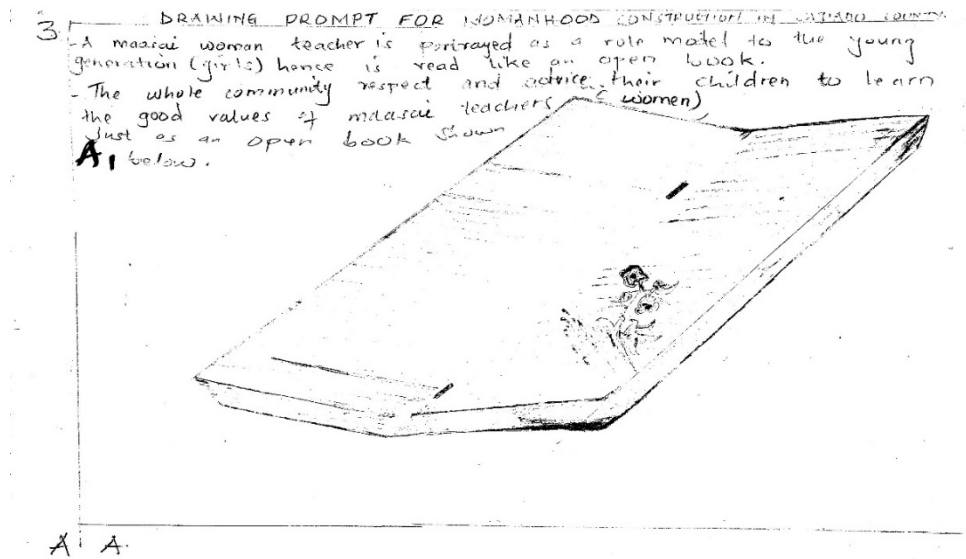 3 DRAWING PROMPT FOR WOMANHOOD CONSTRUCTION IN KAJIADO COUNTY.
- A maasai woman teacher is portrayed as a role model to the young
generation (girls) hence is read like an open book.
- The whole community respect and advice their children to learn
the good values of maasai teachers (women)
Just as an open book shown
A1 below.
A A.